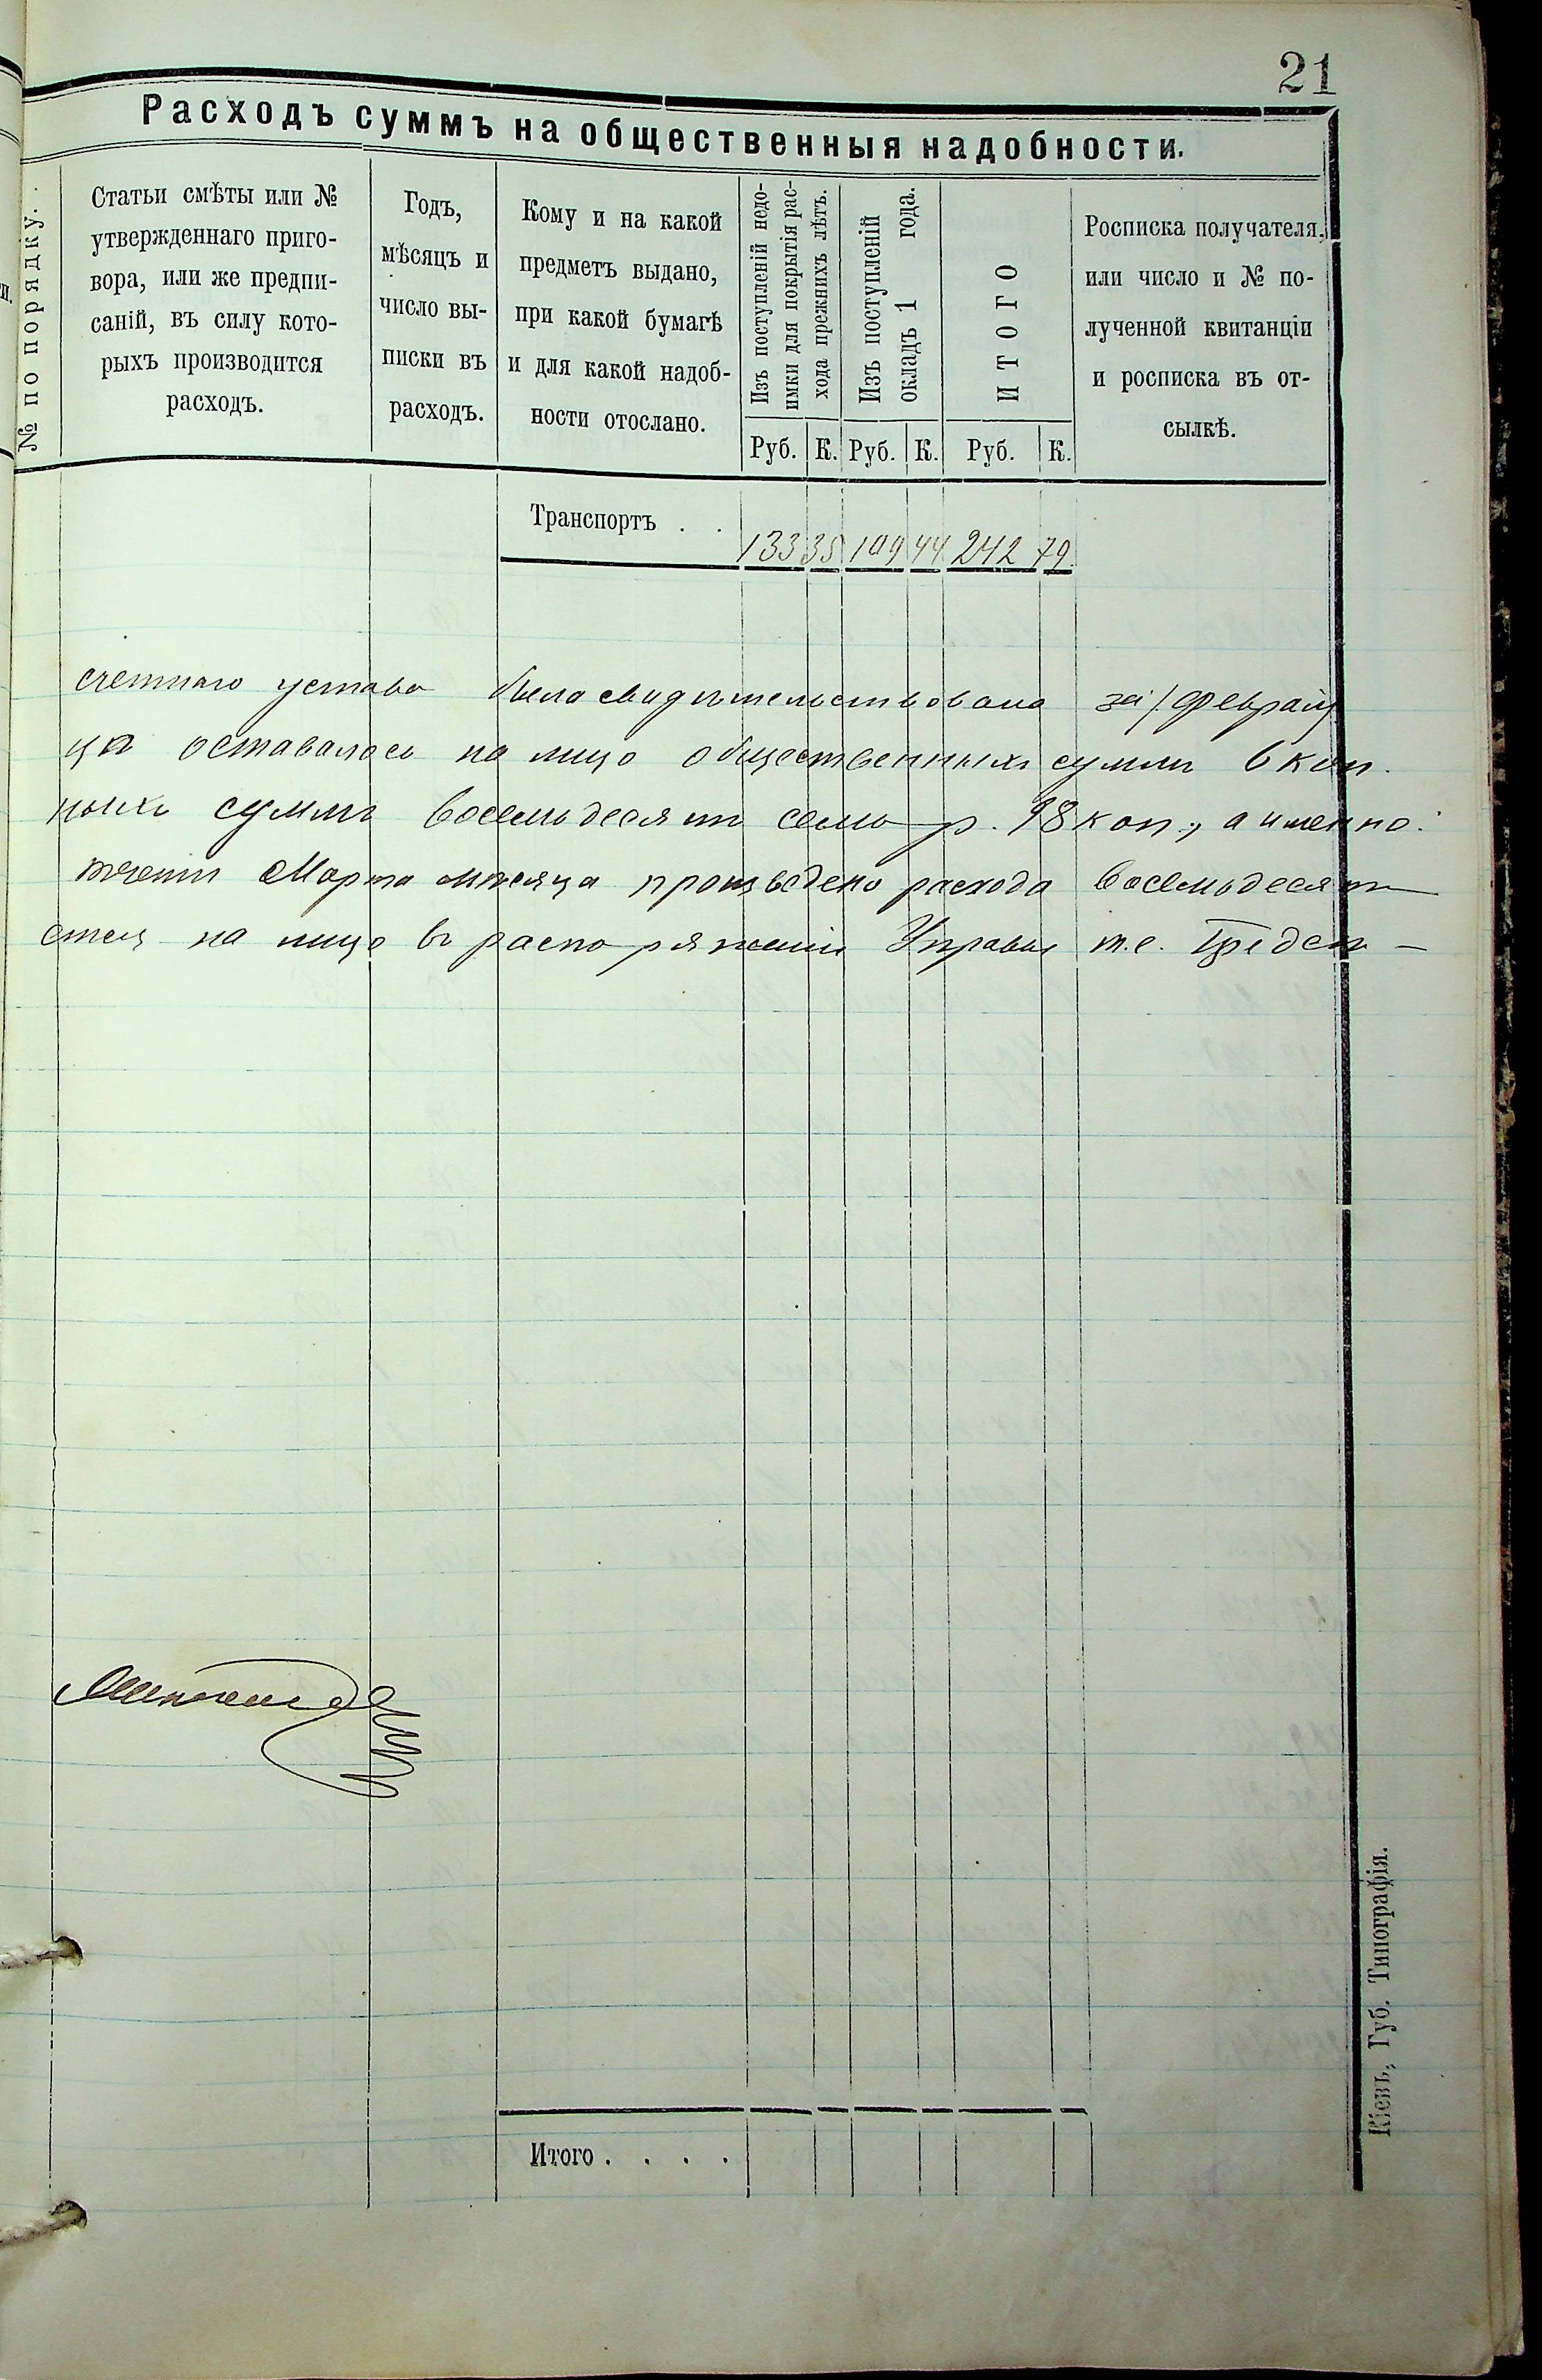 21
Расходъ суммъ на общественныя надобности.
№ по порядку.
Статьи смѣты или №
утвержденнаго приго-
вора, или же предпи-
саній, въ силу кото-
рыхъ производится
расходъ.
Годъ,
мѣсяцъ и
число вы-
писки въ
расходъ.
Кому и на какой
предметъ выдано,
при какой бумагѣ
и для какой надоб-
ности отослано.
Изъ поступленій недо-
имки для покрытія рас-
хода прежнихъ лѣтъ.
Изъ поступленій
окладъ 1 года.
ИТОГО
Росписка получателя,
или число и № по-
лученной квитанціи
и росписка въ от-
сылкѣ.
Руб. К. Руб. К. Руб. К.
Транспортъ . . 133 35 109 44 242 79
счетнаго устава была свидѣтельствована за февраль
ца оставалось на лицо общественныхъ суммъ 6 коп.
ныхъ суммъ восемьдесятъ семь р. 98 коп., а именно:
теченіи Марта мѣсяца произведено расхода восемьдесят
стся на лицо въ распоряженіи Управы т.е.
Итого . . . .
Кіевъ, Губ. Типографія.